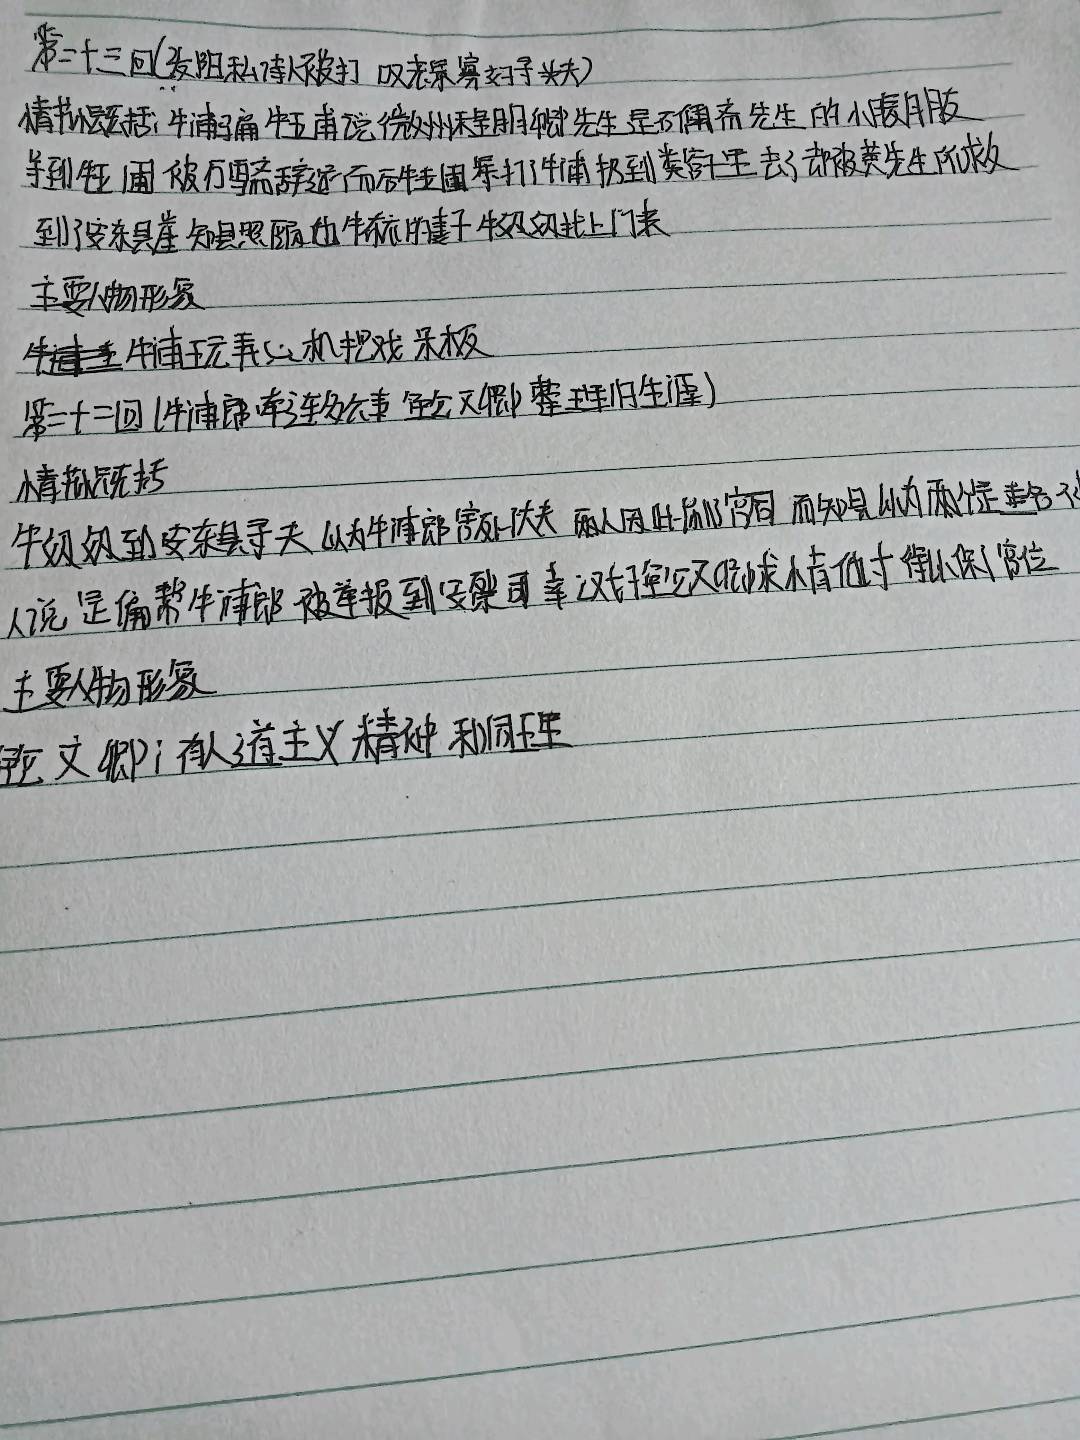 第二十三回(发阴私诗人被打 叹老景寡妇寻夫)
情节概括:牛浦骗牛玉甫说徽州程明卿先生是万佩斋先生的小腹月殷
等到牛玉圃被万雪斋辞退而后牛玉圃暴打了牛浦扔到粪窖里去了却被黄先生所救
到了安东县董知县照顾他牛布衣的妻子牛奶奶找上门来
主要人物形象
牛浦玩弄心机把戏 呆板
第二十二回(牛浦郎牵连多公事 鲍文卿整理旧生涯)
情节概括
牛奶奶到安东县寻夫 以为牛浦郎害死丈夫 两人因此 而知县以为两个是重名
人说是偏帮牛浦郎 被举报到安察司 幸汉好鲍文卿求情他才得以保了官位
主要人物形象
鲍文卿:有人道主义精神 和同性